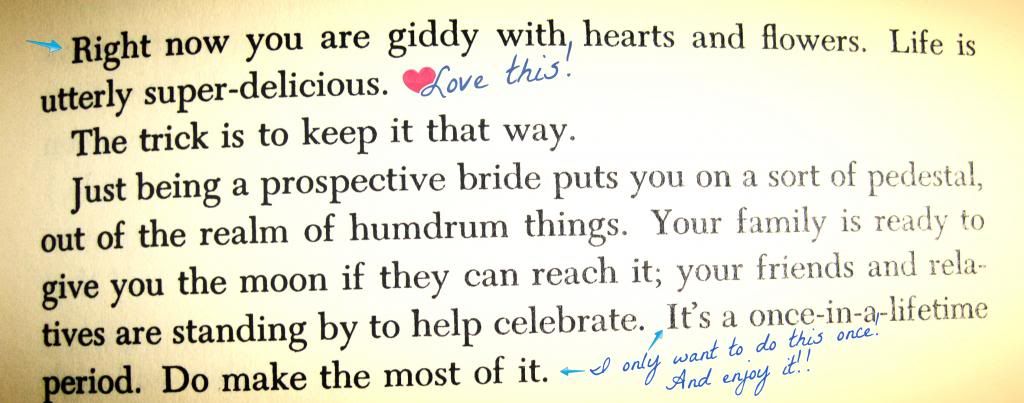 Right now you are giddy with hearts and flowers. Life is
utterly super-delicious. Love this!
The trick is to keep it that way.
Just being a prospective bride puts you on a sort of pedestal,
out of the realm of humdrum things. Your family is ready to
give you the moon if they can reach it; your friends and rela-
tives are standing by to help celebrate. It's a once-in-a-lifetime
period. Do make the most of it. I only want to do this once!
And enjoy it!!